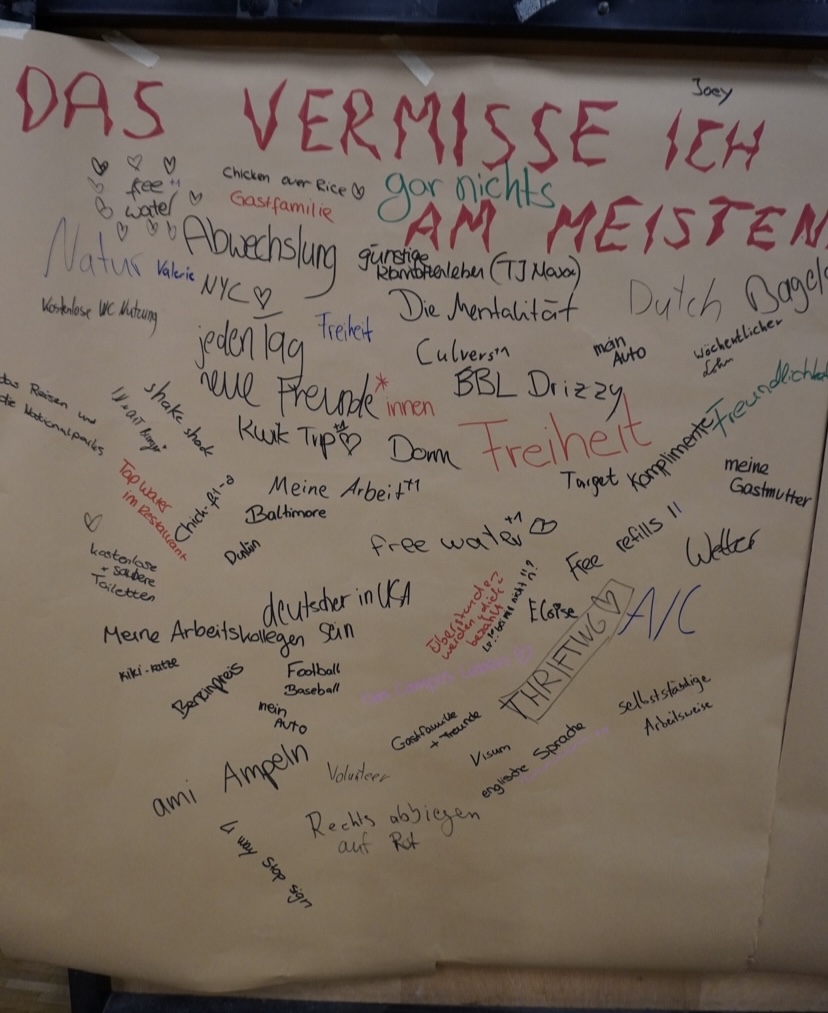 Joey
DAS VERMISSE ICH
AM MEISTEN
free
water
Chicken over Rice
gar nichts
Gastfamilie
Natur
Valerie
Abwechslung
günstige
(TJ Maxx)
NYC
Kostenlose WC Nutzung
Freiheit
Die Mentalität
Dutch
Bagels
jeden Tag
neue Freunde*innen
Culvers
mein
Auto
wöchentlicher
Lohn
BBL Drizzy
Freundlichkeit
das Reisen und
die Nationalparks
shake shack
Kwik Trip +1
Dom
Freiheit
Target
Komplimente
meine
Gastmutter
Tap Water
im Restaurant
Chick-fil-a
Meine Arbeit +1
Baltimore
free water +1
Free refills !!
Wetter
kostenlose
+ saubere
Toiletten
deutscher in USA
sein
Meine Arbeitskollegen
Überstunden
werden
bezahlt
Eloise
THRIFTING
A/C
Kiki-Katze
Benzinpreis
Football
Baseball
mein
Auto
Gastfamilie
+ Freunde
Visum
englische Sprache
selbstständige
Arbeitsweise
ami Ampeln
Volunteer
Rechts abbiegen
auf Rot
4 way stop sign